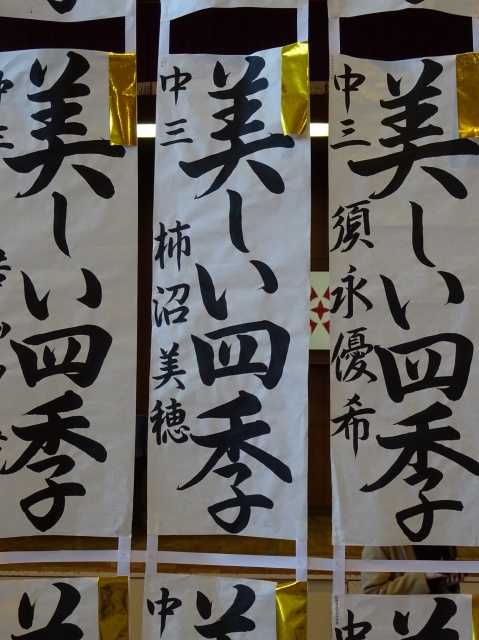 美しい四季
中三 須永優希
美しい四季
中三 柿沼美穂
美しい四季
中三
美
中
美
中
美